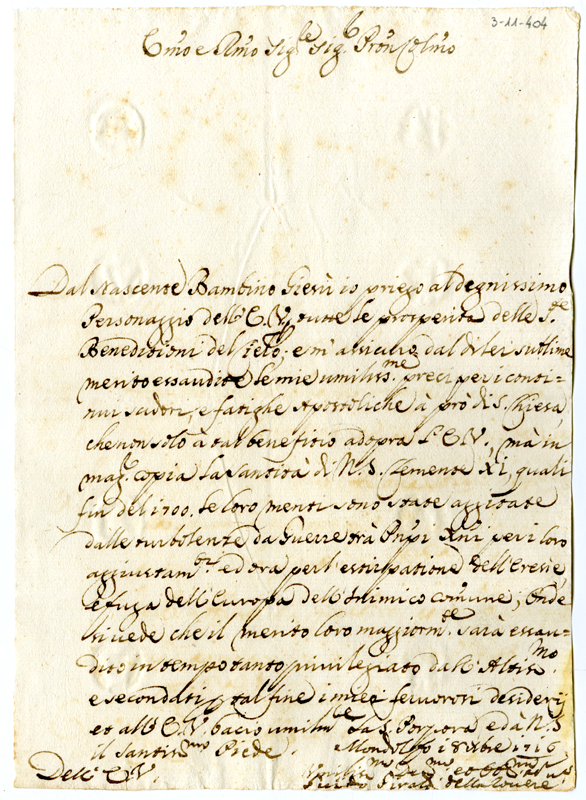 3-11-404
Emo e Rmo Sigre Sigr Pron Colmo
Dal Nascente Bambino Giesù io priego al degnissimo
Personaggio dell'E.V. tutte le prosperità delle Ste
Benedizioni del Cielo; e m'assicuro dal di lei sublime
merito essaudite le mie umilissme preci per i conti-
nui sudori, e fatighe Apostoliche à prò di S. Chiesa
che non solo à tal beneficio adopra l'E.V., mà in
magr. copia la Santità di N.S. Clemente XI, quali
fin del 1700. le loro menti sono state aggitate
dalle turbolenze da Guerre trà Pnpi Xni per i loro
aggiustamti, ed ora per l'estirpatione dell'Eresie
e fuga dell'Europa dell'Inimico comune; Onde
si vede che il merito loro maggiormte sarà essau-
dito in tempo tanto privilegiato dall'Altismo.
e secondati p tal fine i miei fervorosi desiderij
et all'E.V. bacio umilmte la S. Porpora, ed à N.S.
il Santismo Piede. Mondolfo 18 Xbre 1716
Dell'E.V.
della Rovere